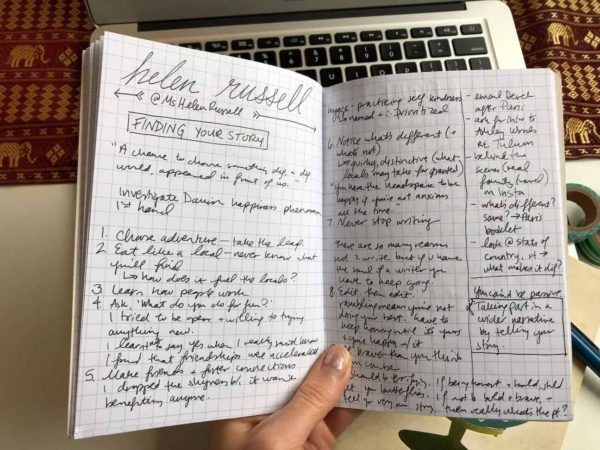 helen russell
@MsHelenRussell
FINDING YOUR STORY
"A chance to choose something dif, a dif
world, appeared in front of us."
Investigate Danish happiness phenomenon
1st hand
1. Choose adventure – take the leap
2. Eat like a local – never know what
you'll find
↳ how does it fuel the locals?
3. Learn how people work
4. Ask, 'What do you do for fun?'
I tried to be open + willing to trying
anything new.
I learned to say yes when I really
I found that friendships were accelerated
5. Make friends + foster connections
I dropped the shyness b/c it wasn't
benefiting anyone.
practicing self kindness
is named + prioritized
6. Notice what's different (+
what's not)
quirky, distinctive (what
locals may take for granted)
"You have the headspace to be
happy if you're not anxious
all the time."
7. Never stop writing
There are so many reasons
not 2 write but if u have
the soul of a writer you
have to keep going.
8. Edit, then edit.
rambling means you're not
doing your best. have to
keep honing until it's yours
& you're happy w/ it
braver than you think
you can be
should be terrifying. If being honest + bold, should
get you butterflies. If not a bold + brave,
tell yr very own story, then really what's the pt?
- email
after Paris
- ask for intro to
Ashley
re Tulum
behind the
scenes (real
family travel)
on Insta
- what's different?
same? → Paris
booklet
- look @ stats of
country, →
what makes it dif?
You can't be passive
Taking part in a
wider narrative
by telling your
story